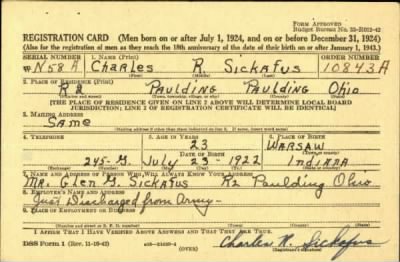 FORM APPROVED
Budget Bureau No. 33-R012-42
REGISTRATION CARD—(Men born on or after July 1, 1924, and on or before December 31, 1924)
(Also for the registration of men as they reach the 18th anniversary of the date of their birth on or after January 1, 1943.)
SERIAL NUMBER 1. NAME (Print) ORDER NUMBER
N58A Charles R. Sickafus 10843A
2. PLACE OF RESIDENCE (Print)
R2 Paulding Paulding Ohio
[THE PLACE OF RESIDENCE GIVEN ON LINE 2 ABOVE WILL DETERMINE LOCAL BOARD
JURISDICTION; LINE 2 OF REGISTRATION CERTIFICATE WILL BE IDENTICAL]
3. MAILING ADDRESS
Same
4. TELEPHONE 5. AGE IN YEARS 6. PLACE OF BIRTH
23 Warsaw
DATE OF BIRTH
245-G. July 23-1922 Indiana
7. NAME AND ADDRESS OF PERSON WHO WILL ALWAYS KNOW YOUR ADDRESS
Mr. Glen Sickafus R2 Paulding Ohio
8. EMPLOYER'S NAME AND ADDRESS
Just Discharged from Army-
9. PLACE OF EMPLOYMENT OR BUSINESS
I AFFIRM THAT I HAVE VERIFIED ABOVE ANSWERS AND THAT THEY ARE TRUE.
DSS Form 1 (Rev. 11-16-42) (OVER)
Charles R. Sickafus